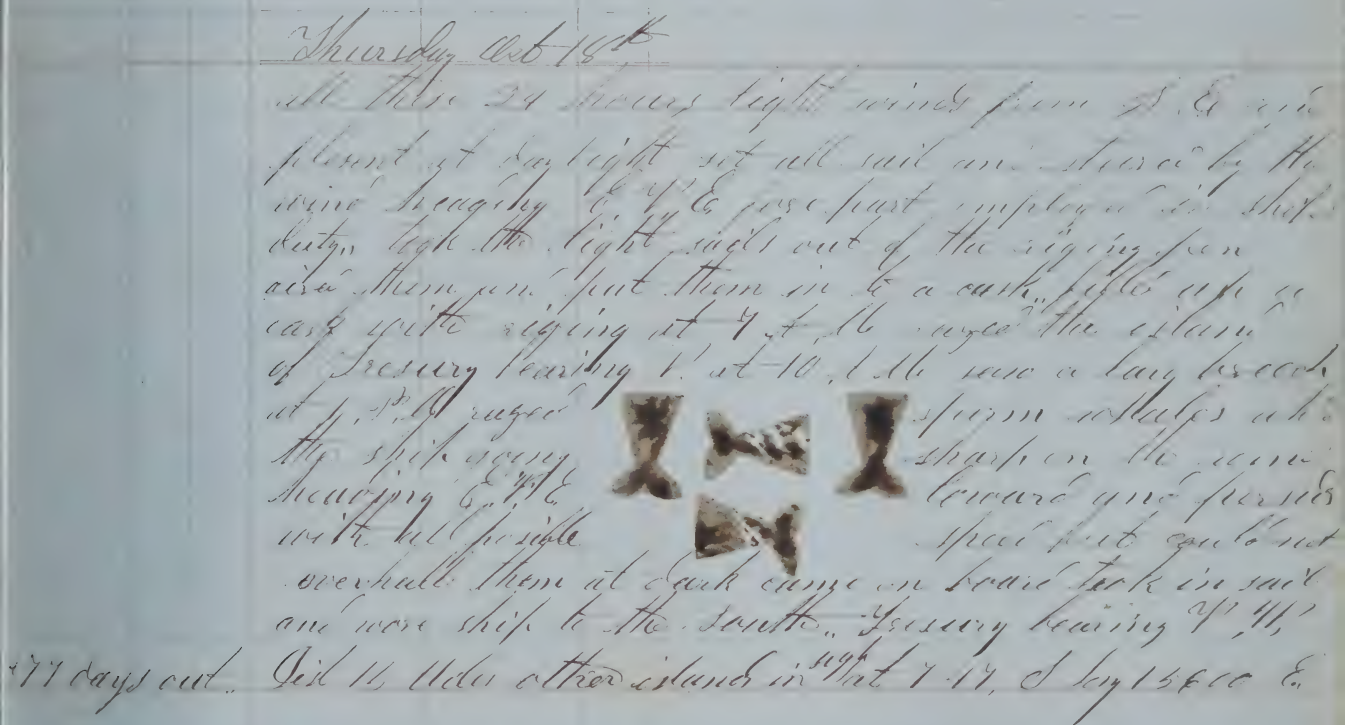 Thursday Oct 18th
all these 24 hours light winds from S E and
plesent at day light set all sail and steared by the
wind heading E by E fore part employed in ships
duty, took the light sails out of the riging pen
aird them and put them in to a cask, filld up a
cask with riging at 7 A, M the island
of Tresury bearing at 10 A M saw a larg breach
at P.M raised sperm whales
the ship going sharp on the wind
heading E loward and persued
with all posible speed but could not
overhall them at dark came on board took in sail
and wore ship to the South,, Tresury bearing
77 days out. Dist other islands in sight at 7-17, S long 156 00 E